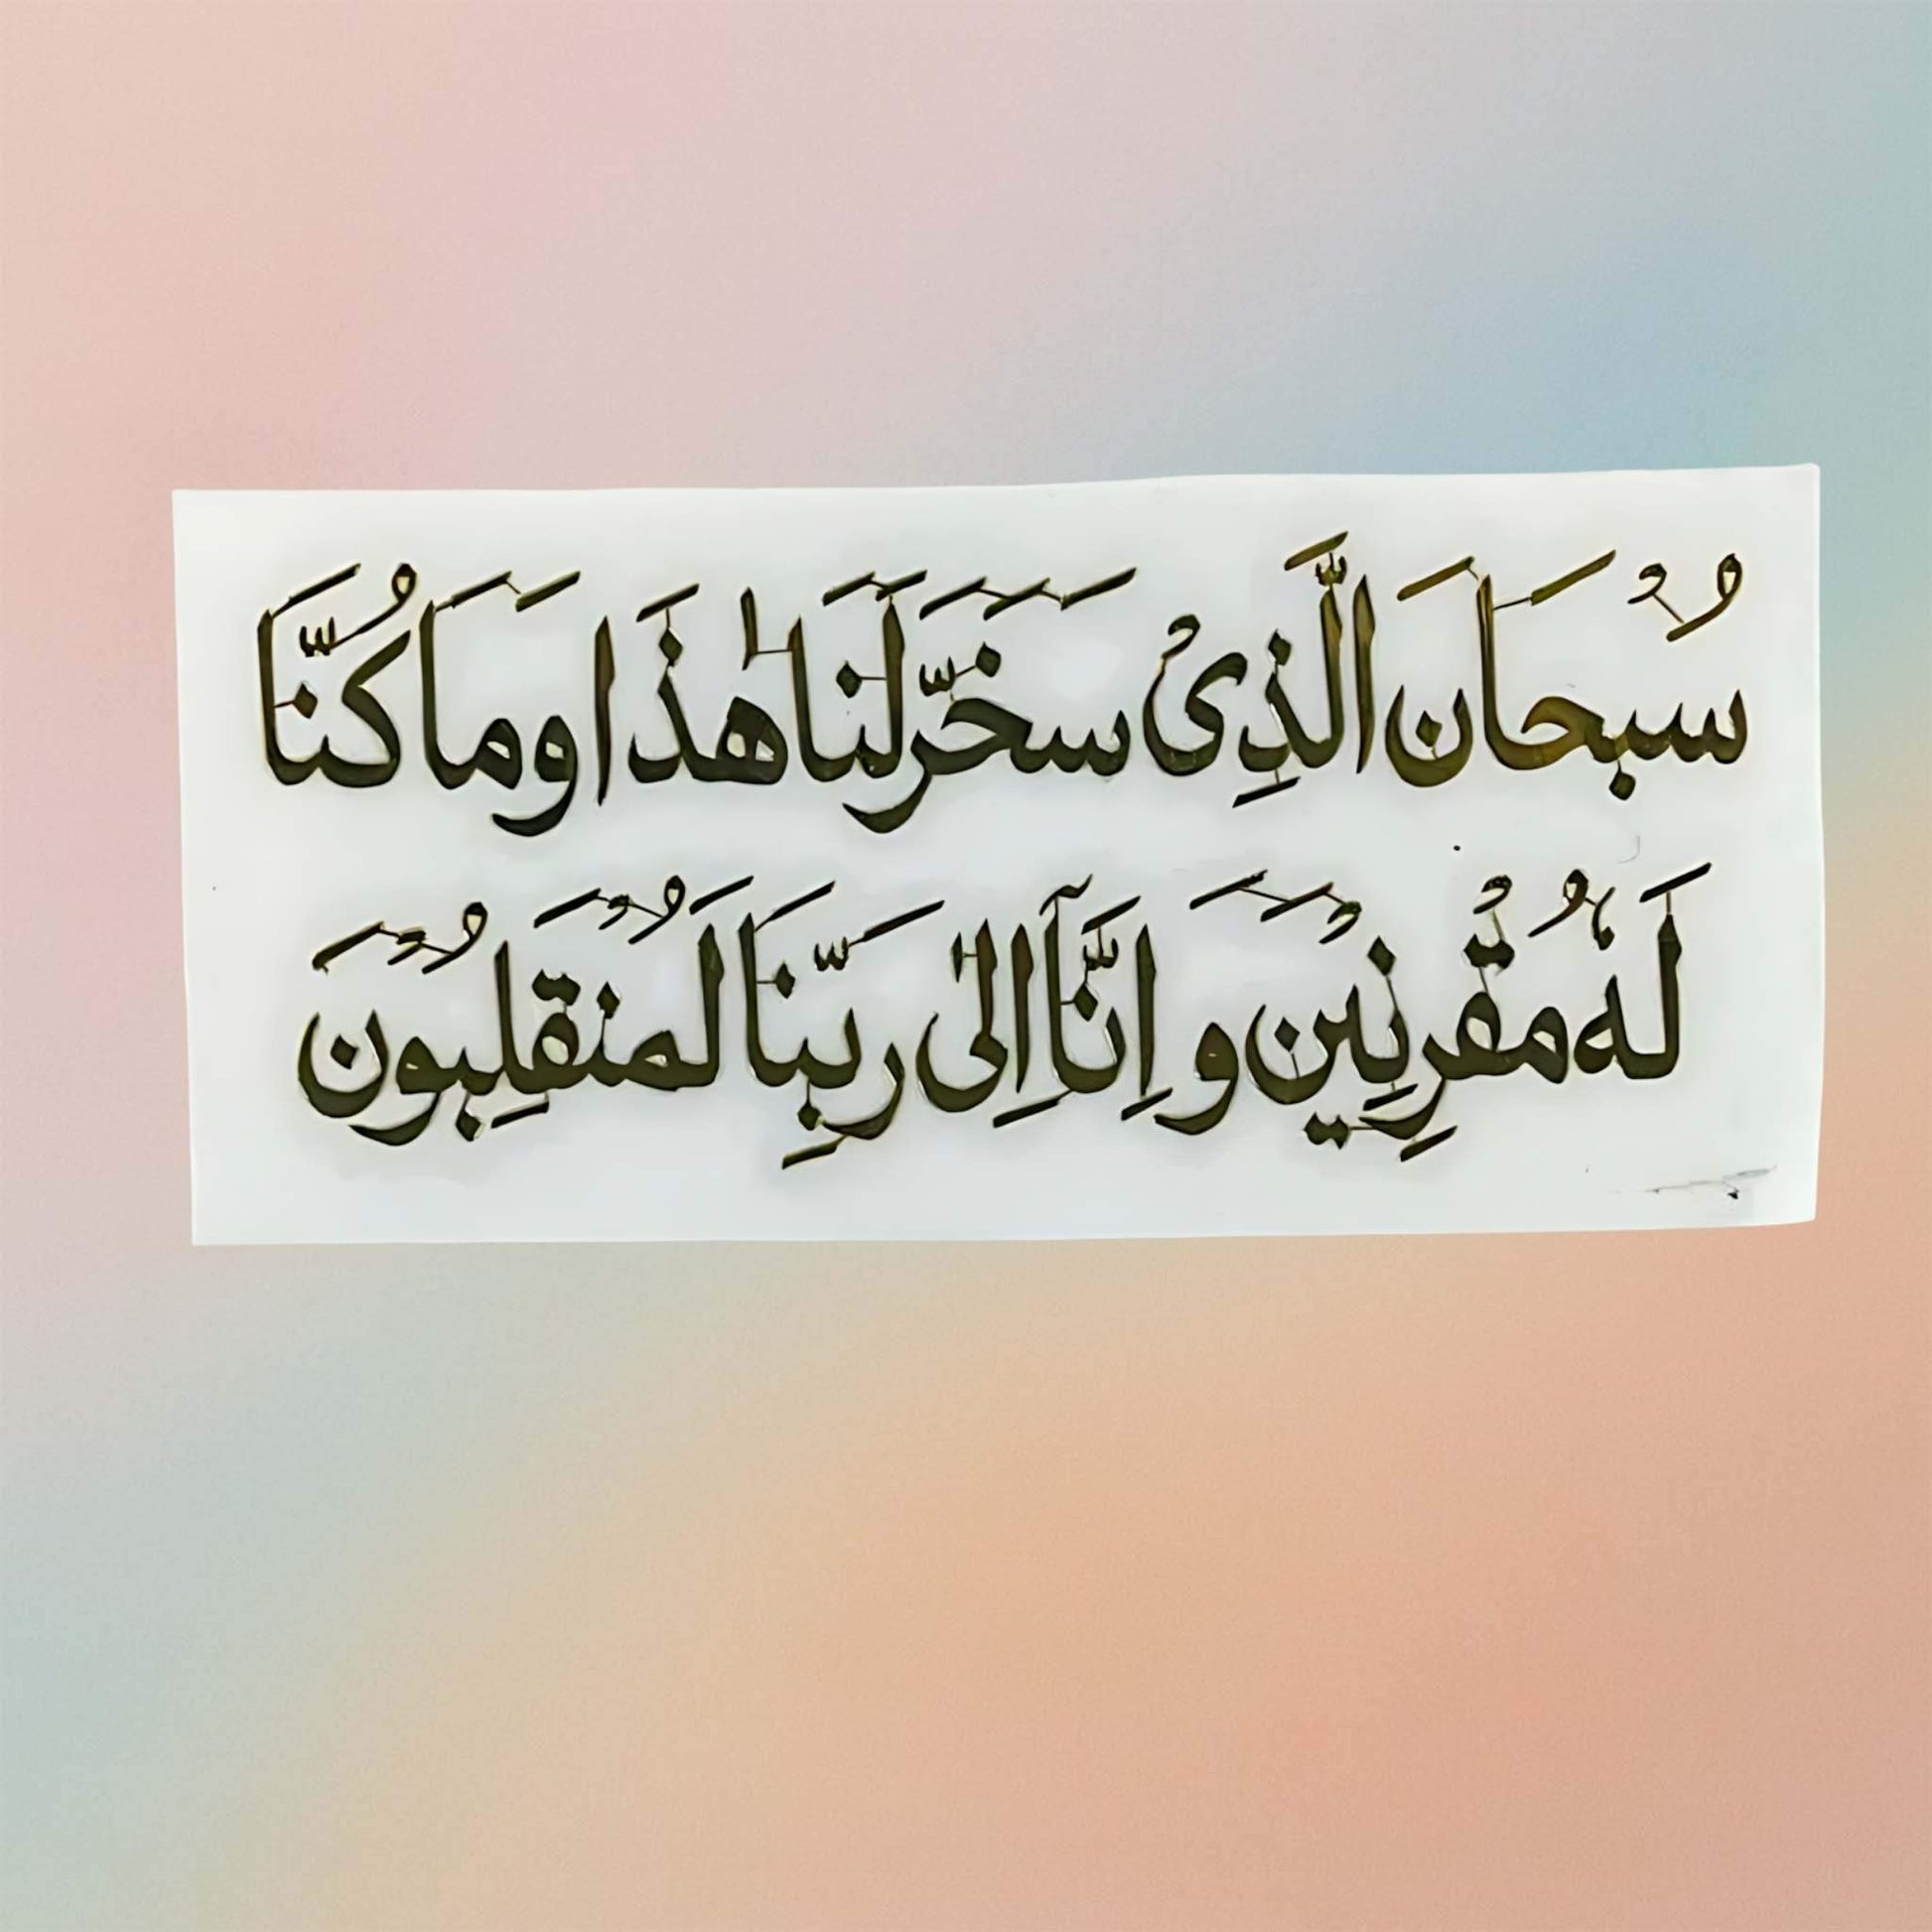 سُبْحَانَ الَّذِیْ سَخَّرَلَنَا هٰذَا وَمَا كُنَّا
لَهٗ مُقْرِنِيْنَ وَ اِنَّآ اِلٰی رَبِّنَا لَمُنْقَلِبُوْنَ